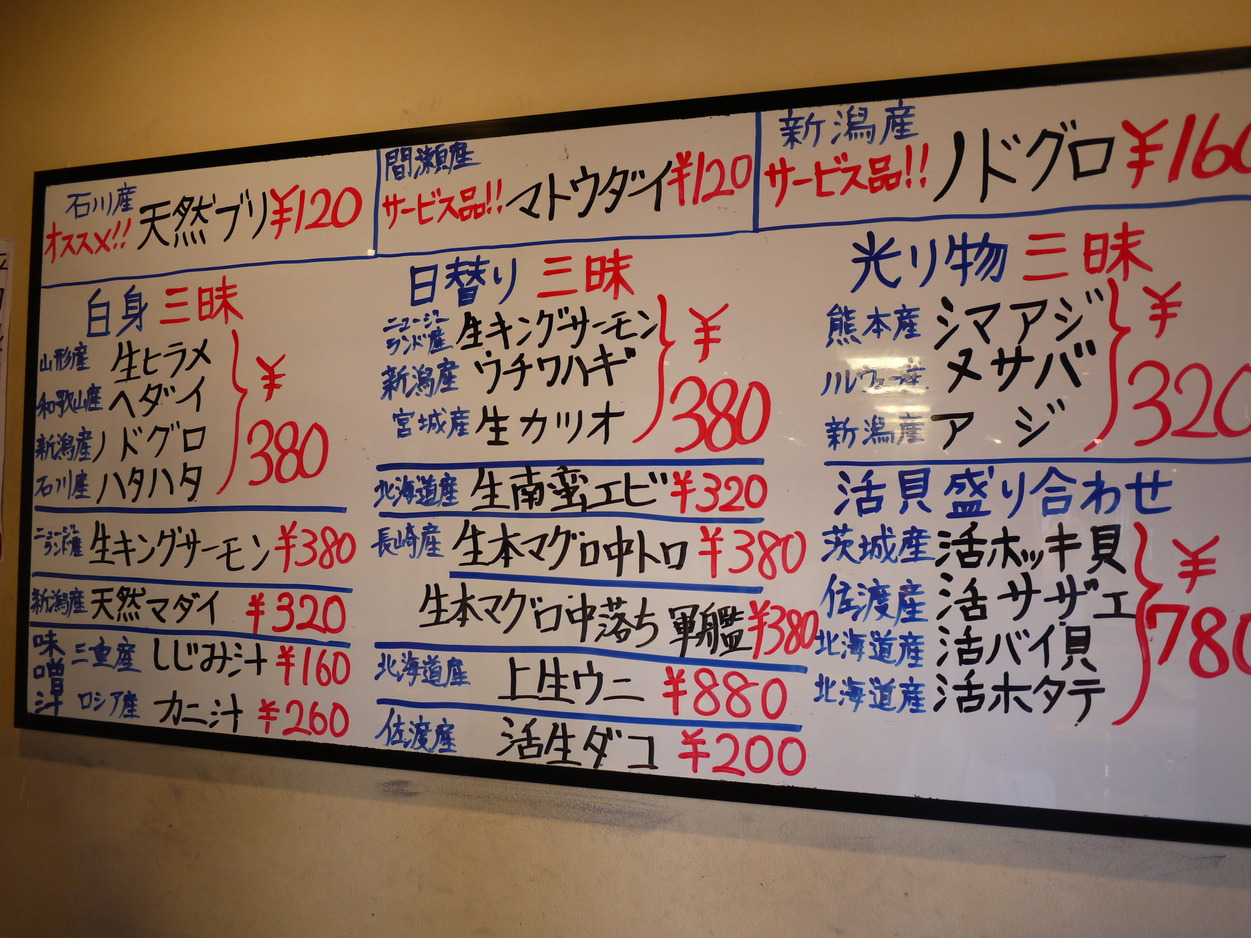 石川産
オススメ!! 天然ブリ ¥120
間瀬産
サービス品!! マトウダイ ¥120
新潟産
サービス品!! ノドグロ ¥160
白身 三昧
山形産 生ヒラメ
和歌山産 ヘダイ
新潟産 ノドグロ
石川産 ハタハタ
¥380
ニュージーランド産 生キングサーモン ¥380
新潟産 天然マダイ ¥320
味噌汁
三重産 しじみ汁 ¥160
ロシア産 カニ汁 ¥260
日替り 三昧
ニュージーランド産 生キングサーモン
新潟産 ウチワハギ
宮城産 生カツオ
¥380
北海道産 生南蛮エビ ¥320
長崎産 生本マグロ中トロ ¥380
生本マグロ中落ち 軍艦 ¥380
北海道産 上生ウニ ¥880
佐渡産 活生ダコ ¥200
光り物 三昧
熊本産 シマアジ
ノルウェー産 〆サバ
新潟産 アジ
¥320
活貝盛り合わせ
茨城産 活ホッキ貝
佐渡産 活サザエ
北海道産 活バイ貝
北海道産 活ホタテ
¥780